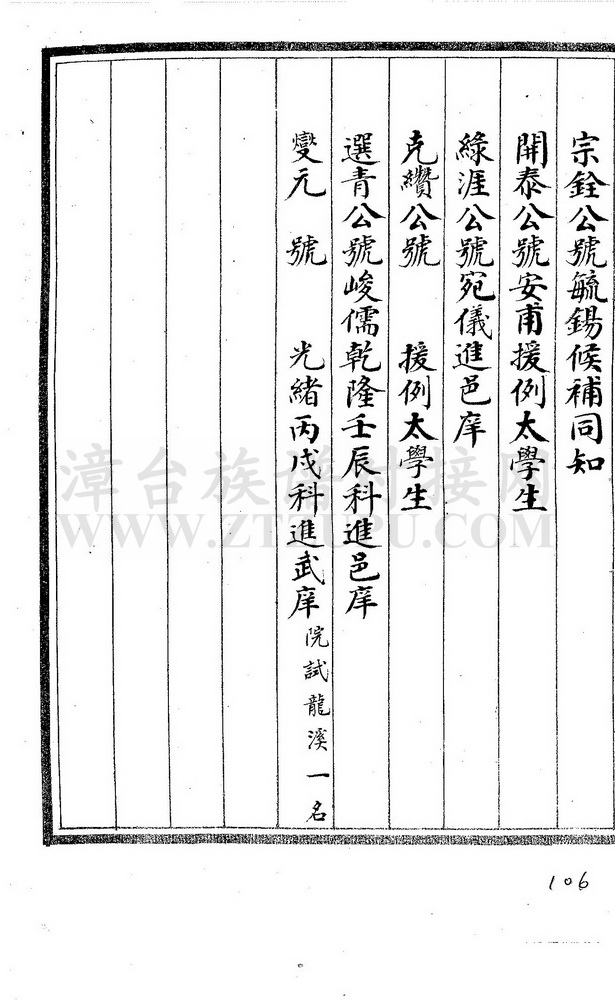 宗銓公號毓錫候補同知
開泰公號安甫援例太學生
綠涯公號宛儀進邑庠
克纘公號　援例太學生
選青公號峻儒乾隆壬辰科進邑庠
燮元　號　光緒丙戌科進武庠院試龍溪一名
106
漳台族譜对接网
WWW.ZTZUPU.COM